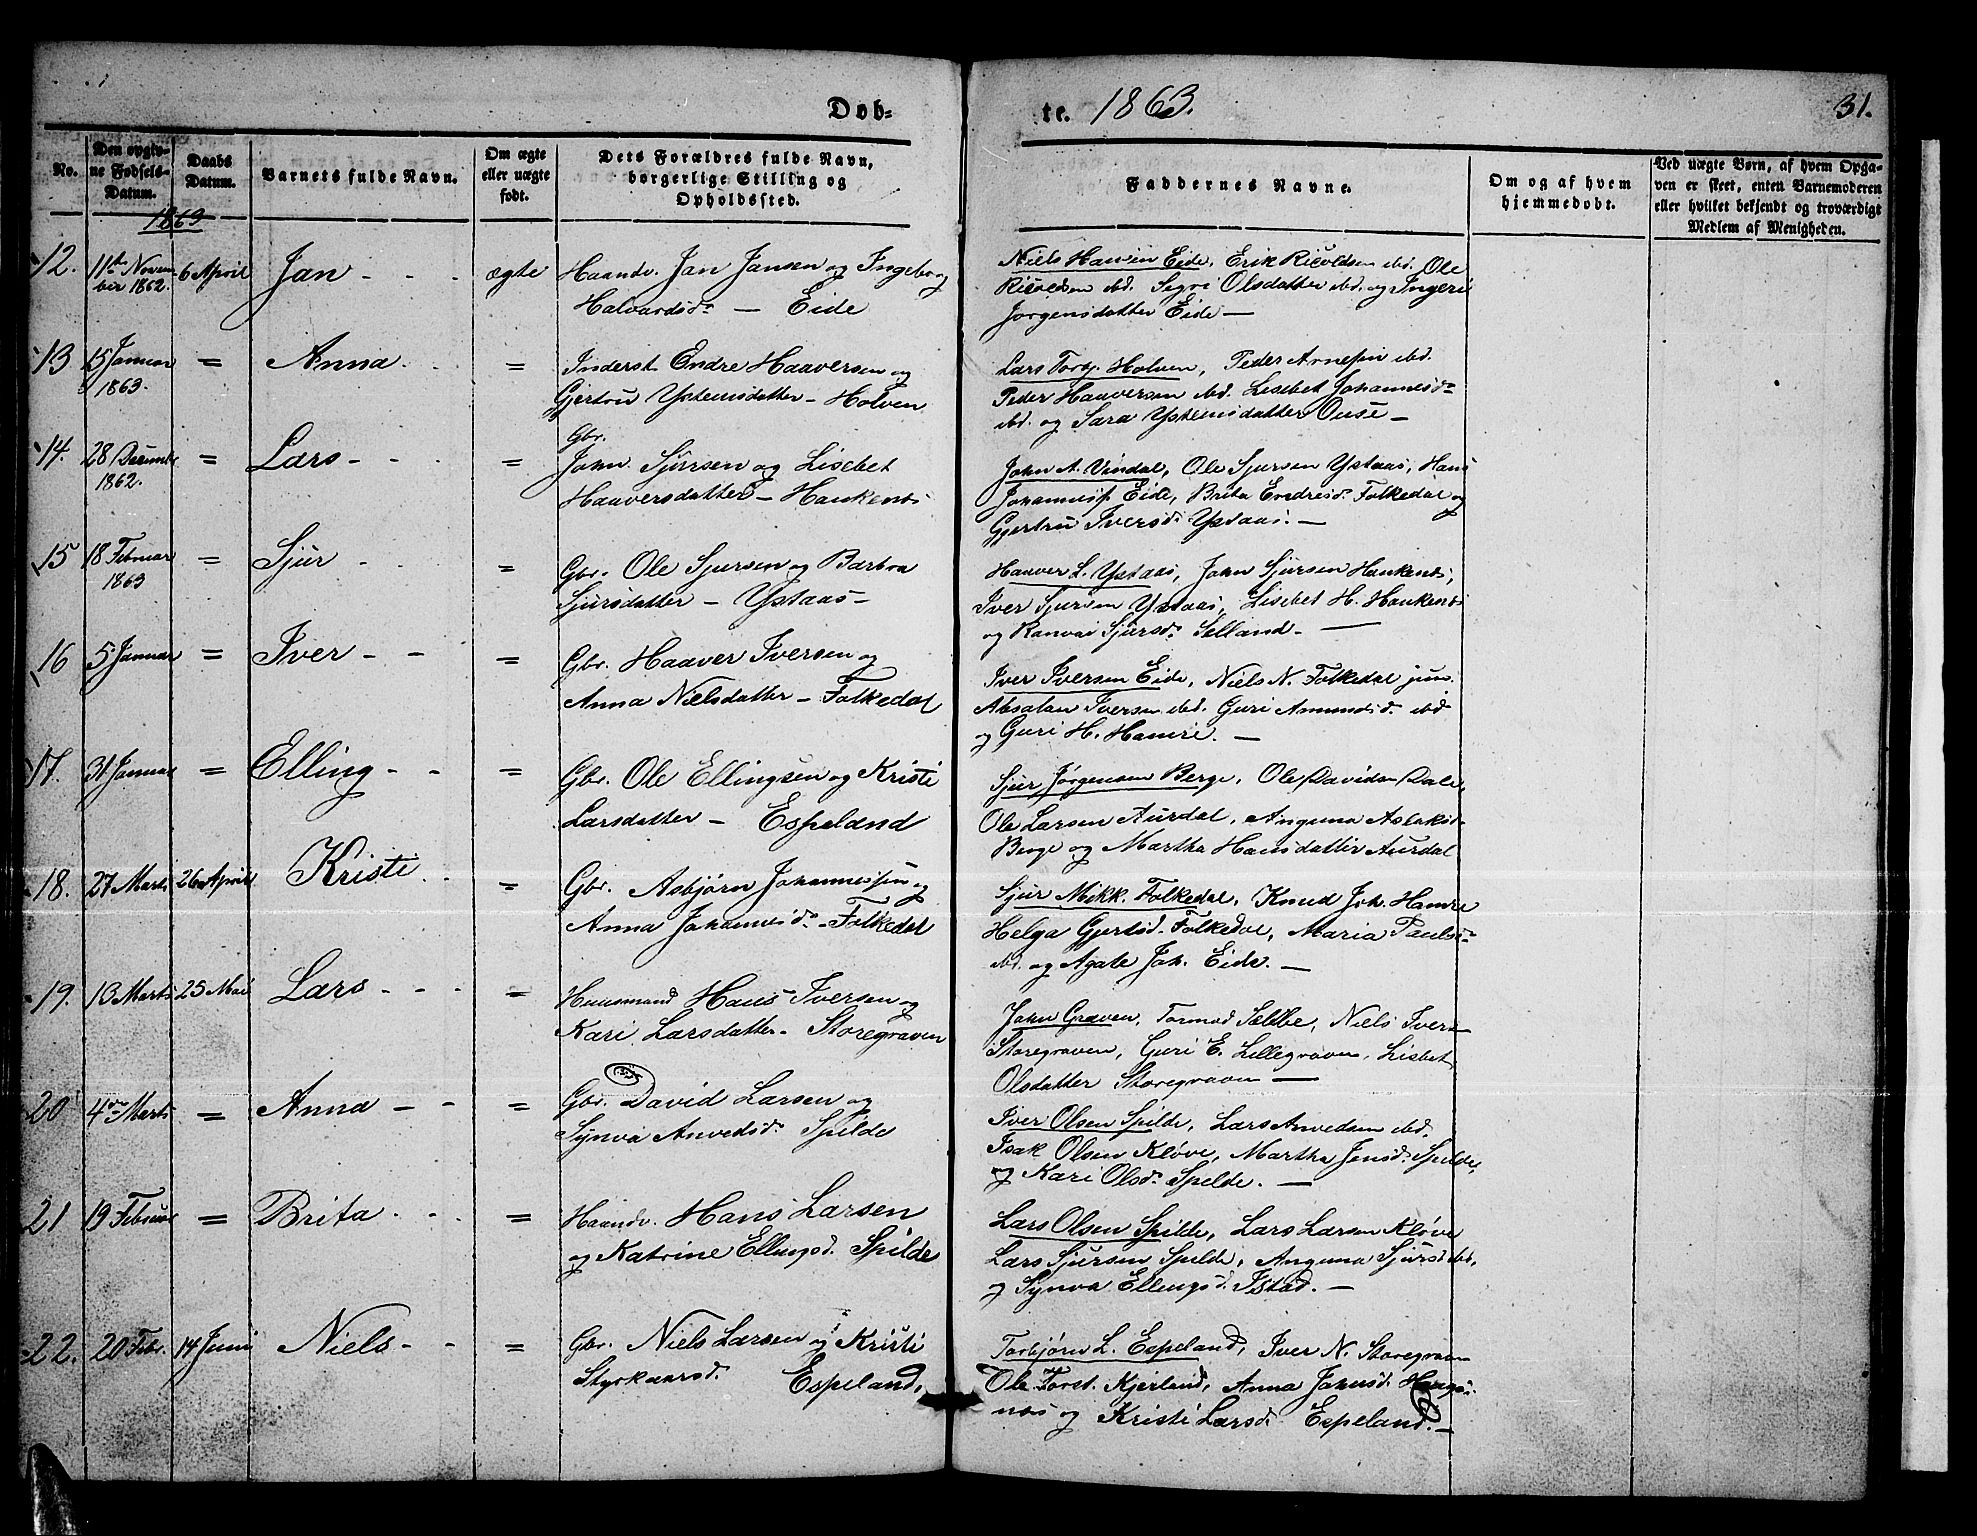 Døb-
te. 1863.
31.
No.
Den opgiv-
ne Fødsels-
Datum.
Daabs
Datum.
Barnets fulde Navn.
Om ægte
eller uægte
født.
Dets Forældres fulde Navn,
borgerlige Stilling og
Opholdssted.
Faddernes Navne.
Om og af hvem
hjemmedøbt.
Ved uægte Børn, af hvem Opga-
ven er skeet, enten Barnemoderen
eller hvilket bekjendt og troværdigt
Medlem af Menigheden.
1863
12. 11te Novem- 6 April Jan - - - ægte Haandv. Jan Jansen og Ingebor
ber 1862. Halvardsdr — Eide
Niels Eide, Erik Ricoldsen ibd. Ole
Ricoldsen ibd. Sigri Olsdatter ibd. og Ingeri
Jørgensdatter Eide —
13 15 Januar = Anna. - - = Inderst Endre Haaversen og
1863. Gjertru Ystensdatter — Holven
Lars Torbj. Holven, Peder Arnesen ibd.
Peder Haaversen ibd. Lisebet Johannesdr
ibd. og Sara Ystensdatter Ouse —
Gbr.
14. 28 Decembr = Lars - - - = John Sjursen og Lisebet
1862. Haaversdatter — Haukenes
John A. Vindal, Ole Sjursen Ystaas, Hans
Johannesen Eide, Brita Endresd. Folkedal og
Gjertru Iversd. Ystaas. —
15 18 Februar = Sjur - - = Gbr. Ole Sjursen og Barbra
1863 Sjursdatter — Ystaas —
Haaver L. Ystaas, John Sjursen Haukenes,
Iver Sjursen Ystaas, Lisebet H. Haukenes
og Ranvei Sjursd. Selland. —
16 5 Januar = Iver - - = Gbr. Haaver Iversen og
Anna Nielsdatter — Folkedal
Iver Iversen Eide, Niels N. Folkedal jun.
Absalon Iversen ibd. Guri Amundsd. ibd
og Guri H. Hamre. —
17. 31 Januar = Elling - - = Gbr. Ole Ellingsen og Kristi
Larsdatter — Espeland
Sjur Jørgensen Berge, Ole Davidsen Dale,
Ole Larsen Aurdal, Anguna Aslaksd.
Berge og Martha Hansdatter Aurdal
18. 27 Marts 26 April Kristi - - = Gbr. Asbjørn Johannessen og
Anna Johannesdr — Folkedal
Sjur Mikk. Folkedal, Knud Joh. Hamre
Helga Gjertsd. Folkedal, Maria Paulsd.
ibd. og Agate Joh. Eide. —
19. 13 Marts 25 Mai Lars - - - = Huusmand Hans Iversen og
Kari Larsdatter — Storegraven
John Graven, Tormod Sæbbe, Niels Ivers.
Storegraven, Guri E. Lillegraven, Lisbet
Olsdatter Storegraven —
20 4de Marts = Anna - - = Gbr. David Larsen og
Synva Anvedsd. Spilde
Iver Olsen Spilde, Lars Anvedsen ibd.
Isak Olsen Kløve, Martha Jensd. Spilde,
og Kari Olsdr Spilde. —
21 19 Februar = Brita. - - = Haandv. Hans Larsen
og Katrine Ellingsd. Spilde
Lars Olsen Spilde, Lars Larsen Kløve
Lars Sjursen Spilde, Anguna Sjursd. ibd.
og Synva Ellingsd. Istad. —
22. 20 Febr. 14 Juni Niels - - = Gbr. Niels Larsen og Kristi
Styrkaarsd. Espeland.
Torbjørn L. Espeland, Iver N. Storegraven
Ole Torst. Kjerland, Anna Johnsd. Hauge-
næs og Kristi Larsd. Espeland. —